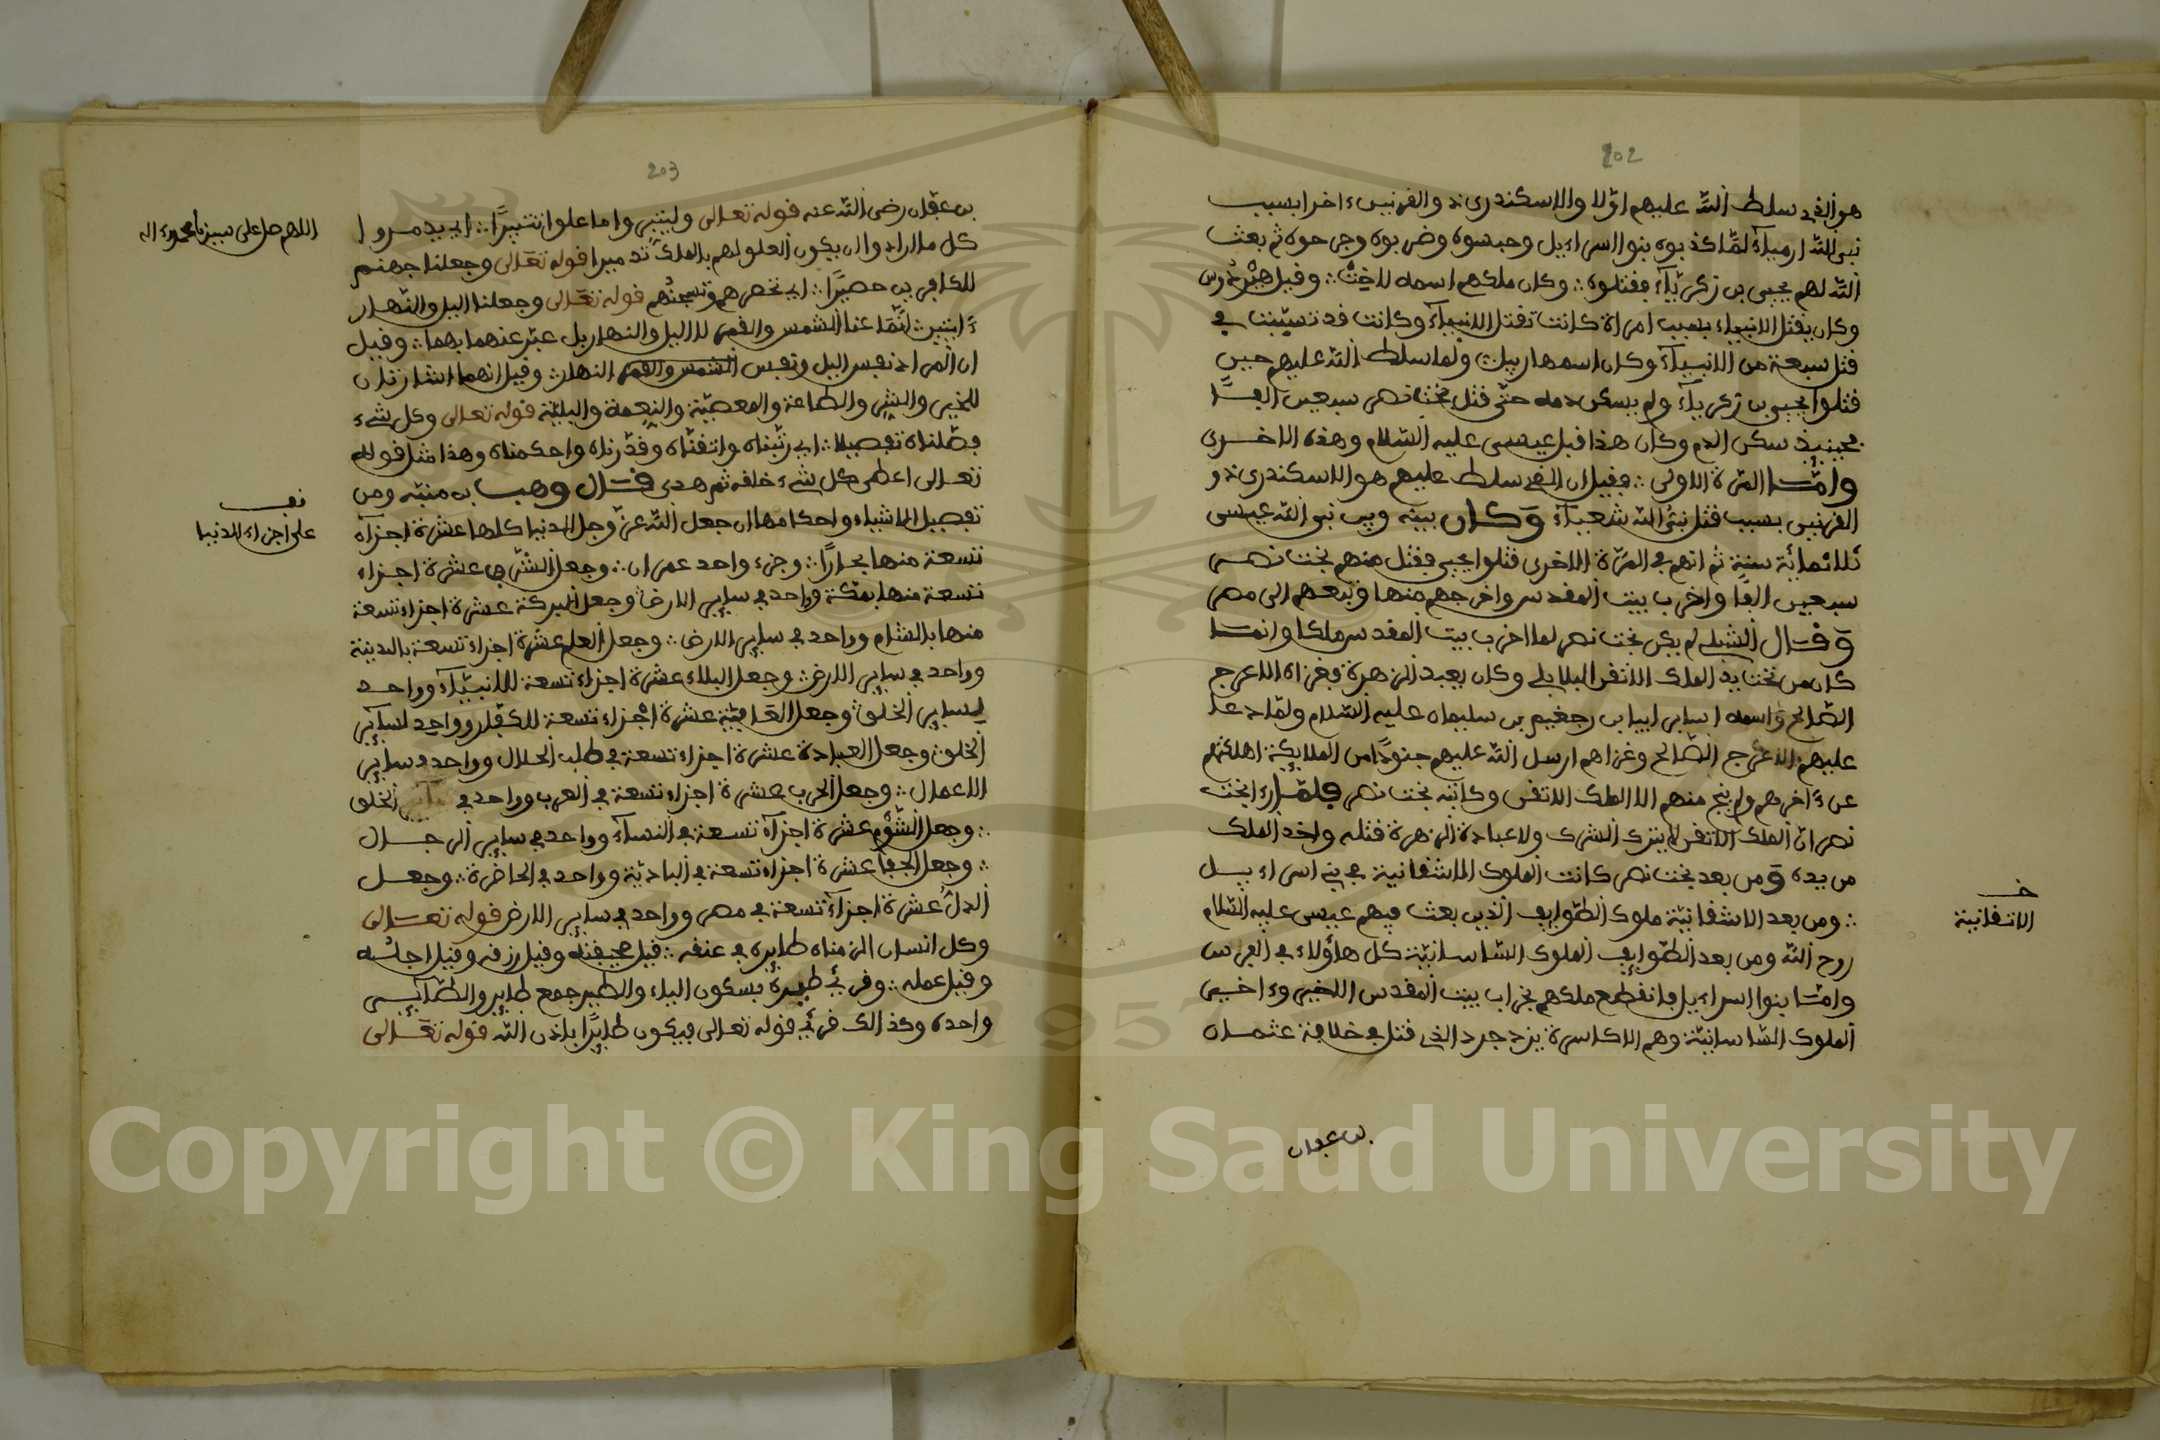 202
هو الذي سلط الله عليهم اولا والاسكندري ذو القرنين ءاخرا بسبب
نبي الله ارمياء لما كذبوه بنوا اسراءيل وحبسوه وضربوه وجرحوه ثم بعث
الله لهم يحيى بن زكرياء فقتلوه ∴ وكان ملكهم اسمه لاخت ∴ وقيل هيردوس
وكان يقتل الانبياء بسبب امراة كانت تقتل الانبياء وكانت قد تسببت في
قتل سبعة من الانبياء وكان اسمها ربيل ∴ ولما سلط الله عليهم حين
قتلوا يحيى بن زكرياء ولم يسكن دمه حتى قتل بخت نصر سبعين الفا
فحينيذ سكن الدم وكان هذا قبل عيسى عليه السلام وهذه الاخرى
واما المرة الاولى ∴ فقيل ان الذي سلط عليهم هو الاسكندري ذو
القرنين بسبب قتل نبي الله شعياء وكان بينه وبين نبي الله عيسى
ثلاثماية سنة ثم انهم في المرة الاخرى قتلوا يحيى فقتل منهم بخت نصر
سبعين الفا واخرب بيت المقدس واخرجهم منها وتبعهم الى مصر
وقال الشبلي لم يكن بخت نصر لما اخرب بيت المقدس ملكا وانما
كان من تحت يد الملك الاتفر البابلي وكان يعبد الزهرة فغزاه الاعرج
الصالح واسمه اسابن ابيا بن رجعيم بن سليمان عليه السلام ولما دعا
عليهم الاعرج الصالح وغزاهم ارسل الله عليهم جنودا من الملايكة اهلكتهم
عن ءاخرهم ولم ينج منهم الا الملك الاتفر وكاتبه بخت نصر فلما راء بخت
نصر ان الملك الاتفر لم يترك الشرك ولا عبادة الزهرة قتله واخذ الملك
من يده ومن بعد بخت نصر كانت الملوك الاشقانية في بني اسراءيل
∴ ومن بعد الاشقانية ملوك الطوايف الذين بعث فيهم عيسى عليه السلام
خ
الاتفانية
روح الله ومن بعد الطوايف الملوك الساسانية كل هاؤلاء في الفرس
واما بنوا اسراءيل فانقطع ملكهم بخراب بيت المقدس الاخير وءاخر
الملوك الساسانية وهم الاكاسرة يزدجرد الذي قتل في خلافة عثمان
بن عفان
203
بن عفان رضي الله عنه قوله تعالى وليتبروا ما علوا تتبيرا ∴ اي يدمروا
اللهم صل على سيدنا محمد وءاله
كل ما ارادوا ان يكون العلو لهم بالملك تدميرا قوله تعالى وجعلنا جهنم
للكافرين حصيرا ∴ اي تحصرهم وتسجنهم قوله تعالى وجعلنا اليل والنهار
ءايتين ∴ انما عنا الشمس والقمر لا اليل والنهار بل عبر عنهما بهما ∴ وقيل
ان المراد نفس اليل ونفس الشمس والقمر النهار ∴ وقيل انهما اشارتان
للخير والشر والطاعة والمعصية والنعمة والبلية قوله تعالى وكل شيء
فصلناه تفصيلا ∴ اي رتبناه واتقناه وقدرناه واحكمناه وهذا مثل قوله
تعالى اعطى كل شيء خلقه ثم هدى قال وهب بن منبه ومن
تفصيل الاشياء واحكامها ان جعل الله عز وجل الدنيا كلها عشرة اجزاء
قف
على اجزاء الدنيا
تسعة منها بحارا ∴ وجزء واحد عمران ∴ وجعل الشر في عشرة اجزاء
تسعة منها بمكة وواحد في ساير الارض وجعل البركة عشرة اجزاء تسعة
منها بالشام وواحد في ساير الارض ∴ وجعل العلم عشرة اجزاء تسعة بالمدينة
وواحد في ساير الارض ∴ وجعل البلاء عشرة اجزاء تسعة للانبياء وواحد
لساير الخلق وجعل العافية عشرة اجزاء تسعة للكفار وواحد لساير
الخلق وجعل العبادة عشرة اجزاء تسعة في طلب الحلال وواحد في ساير
الاعمال ∴ وجعل الحرب عشرة اجزاء تسعة في العرب وواحد في ساير الخلق
∴ وجعل الشؤم عشرة اجزاء تسعة في النساء وواحد في ساير الرجال
∴ وجعل الجفا عشرة اجزاء تسعة في البادية وواحد في الحاضرة ∴ وجعل
الذل عشرة اجزاء تسعة في مصر وواحد في ساير الارض قوله تعالى
وكل انسان الزمناه طايره في عنقه ∴ قيل صحيفته وقيل رزقه وقيل اجله
وقيل عمله ∴ وقرئ طيره بسكون الياء والطير جمع طاير والطاير
واحده وكذالك قرئ قوله تعالى فيكون طايرا باذن الله قوله تعالى
1957
Copyright © King Saud University